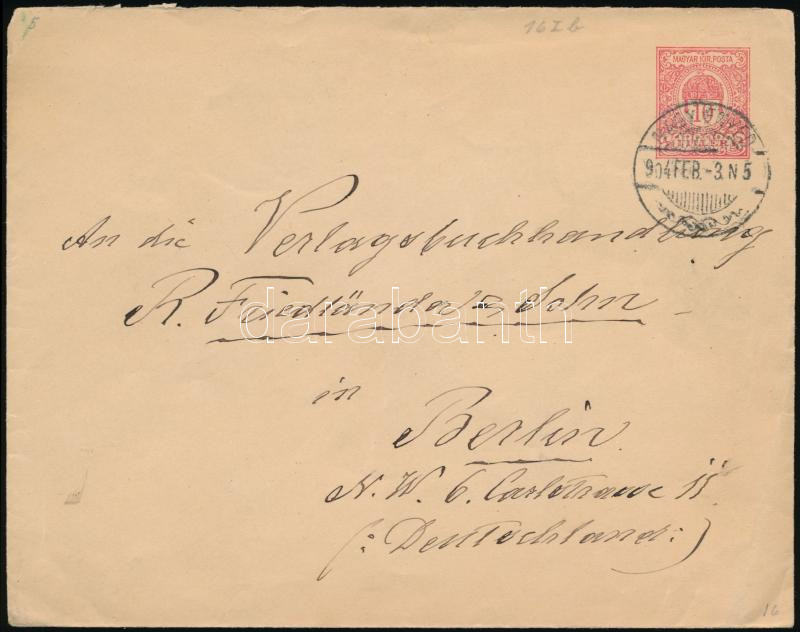 5
16 I b
MAGYAR KIR. POSTA
10
FILLÉR
904 FEB. -3. N 5
An die Verlagsbuchhandlung
R. Friedländer & Sohn
in
Berlin
N. W. 6. Carlstrasse 11
(: Deutschland :)
darabanth
16